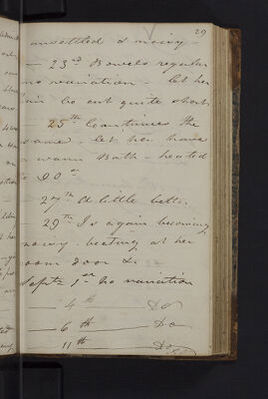 29
unsettled & noisy
— 23rd Bowels regular
no variation — let her
hair be cut quite short
25th Continues the
same. let her have
a warm Bath — heated
to 90°
27th A little better
29th Is again becoming
noisy. beating at her
room door &c
Septr 1st No variation
— 4th — Do
— 6th — Do
— 11th — Do